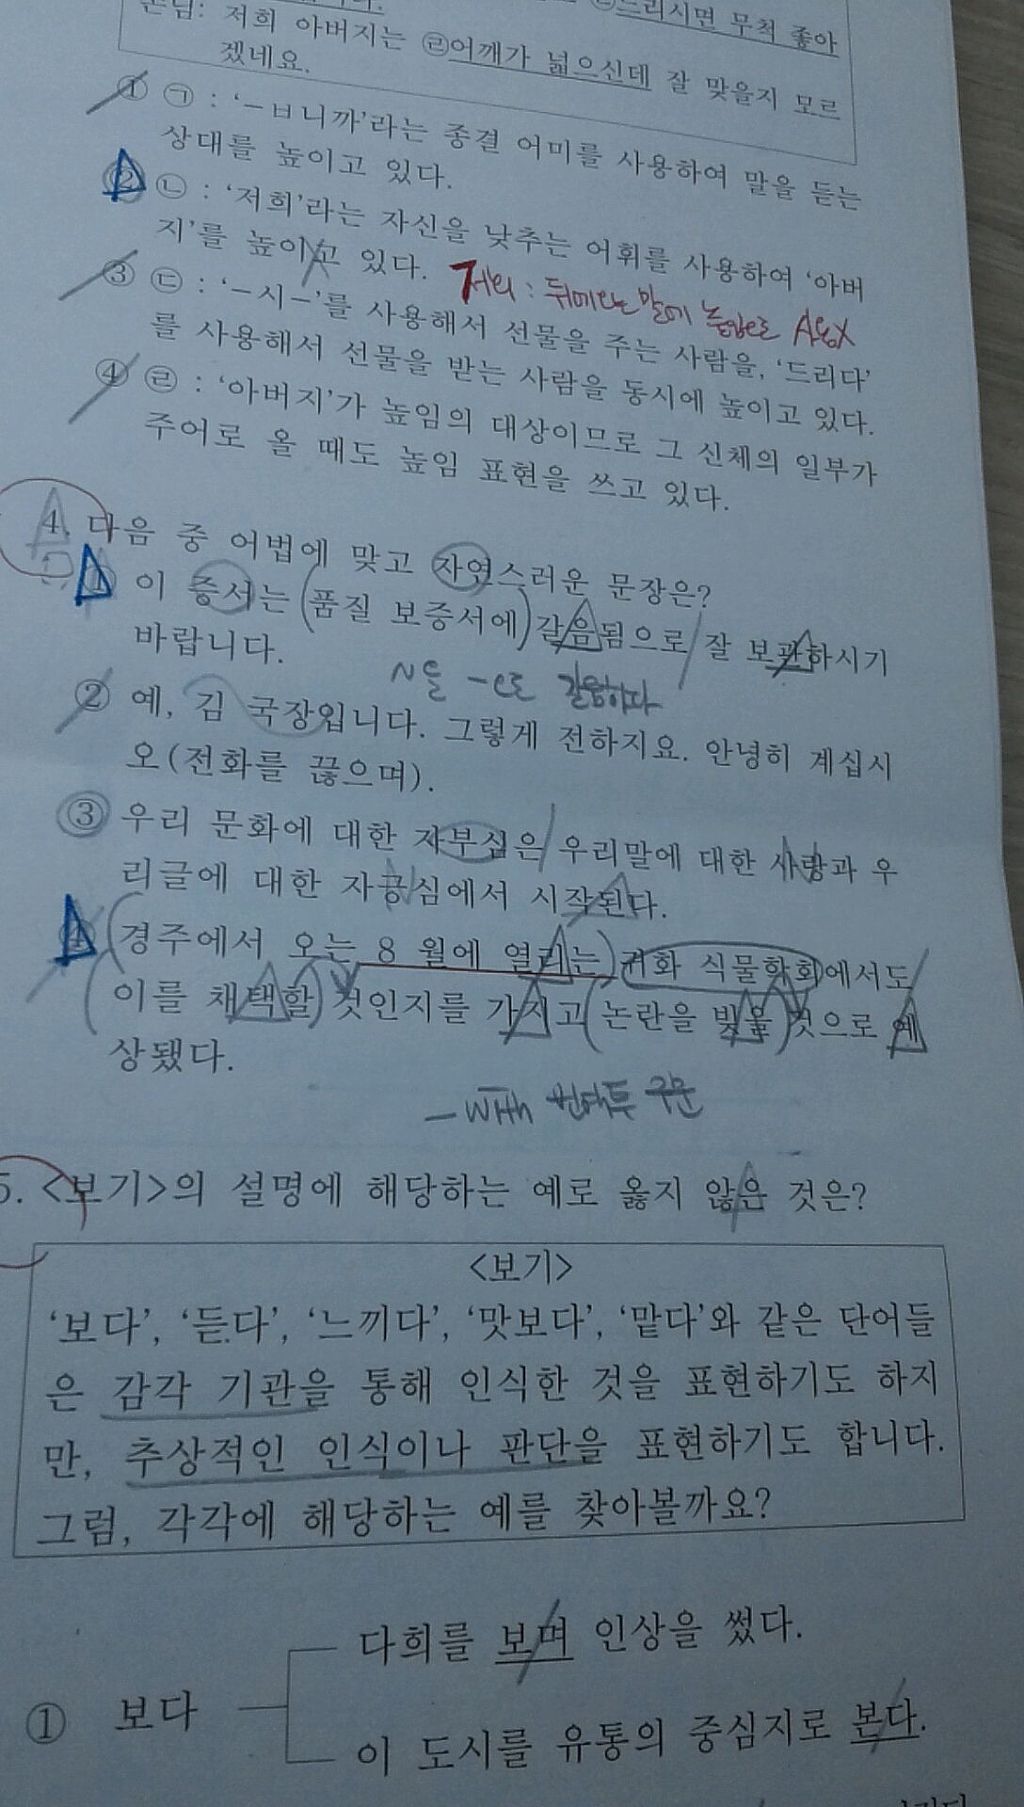 ㉢드리시면 무척 좋아
손님: 저희 아버지는 ㉣어깨가 넓으신데 잘 맞을지 모르
겠네요.
① ㉠ : ‘-ㅂ니까’라는 종결 어미를 사용하여 말을 듣는
상대를 높이고 있다.
② ㉡ : ‘저희’라는 자신을 낮추는 어휘를 사용하여 ‘아버
지’를 높이고 있다.
③ ㉢ : ‘-시-’를 사용해서 선물을 주는 사람을, ‘드리다’
를 사용해서 선물을 받는 사람을 동시에 높이고 있다.
④ ㉣ : ‘아버지’가 높임의 대상이므로 그 신체의 일부가
주어로 올 때도 높임 표현을 쓰고 있다.
4. 다음 중 어법에 맞고 자연스러운 문장은?
① 이 증서는 품질 보증서에 갈음됨으로 잘 보관하시기
바랍니다.
N을 -으로 갈음하다
② 예, 김 국장입니다. 그렇게 전하지요. 안녕히 계십시
오(전화를 끊으며).
③ 우리 문화에 대한 자부심은 우리말에 대한 사랑과 우
리글에 대한 자긍심에서 시작된다.
④ 경주에서 오는 8 월에 열리는 귀화 식물학회에서도
이를 채택할 것인지를 가지고 논란을 빚을 것으로 예
상됐다.
- with 번역투 구문
5. <보기>의 설명에 해당하는 예로 옳지 않은 것은?
<보기>
‘보다’, ‘듣다’, ‘느끼다’, ‘맛보다’, ‘맡다’와 같은 단어들
은 감각 기관을 통해 인식한 것을 표현하기도 하지
만, 추상적인 인식이나 판단을 표현하기도 합니다.
그럼, 각각에 해당하는 예를 찾아볼까요?
다희를 보며 인상을 썼다.
① 보다
이 도시를 유통의 중심지로 본다.